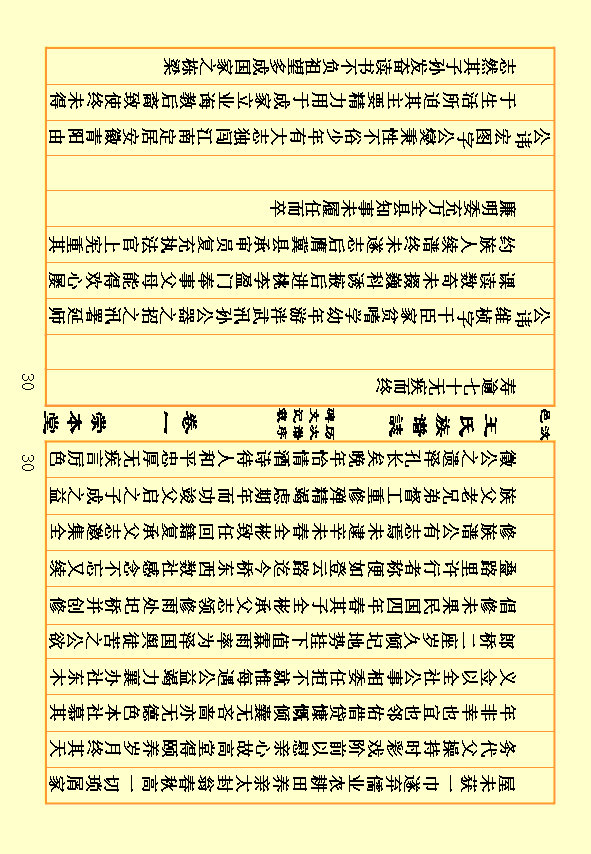 屋未获一巾遂弃儒业农耕田养亲太封翁春秋高一切琐屑家
务代父操持时彩戏阶前以慰亲心故高堂得颐养岁月终其天
年非幸也宜也邻佑借贷慷慨倾囊无吝啬亦无德色本社慕其
义佥以全社公事相委任拒不就惟每遇公益竭力襄办社东木
郎桥一座岁久倾圮地势洼下值雨霖雨率为泽国舆徒苦之公欲
倡修未果民国四年春其子全彬承父志领修雨处圮桥并创修
叠路里许行者称便如登云路迄今桥东西数社感念不忘又续
修族谱公有志焉未逮辛未春全彬致任回籍复承父志邀集全
族父老兄弟督工重修殚精竭虑期年而功竣父启之子成之益
徵公之遗泽孔长矣晚年怡情诗酒待人和平忠厚无疾言厉色
30
汶邑
王氏族谱誌
历次谱序
碑文记载
卷一
崇本堂
30
寿逾七十无疾而终
公讳维桢字干臣家贫嗜学幼年游泮武汛孙公器之招之汛署延师
课读数奇未掇巍科诱掖后进桃李盈门奉事父母能得欢心屡
约族人续谱终未遂志后膺冀县承审员充复法官上宪重其
廉明委充万全县知事未履任而卒
公讳宏图字公燮秉性不俗少年有大志独闯江南定居安徽青阳由
于生活所迫其主要精力用于成家立业诲教后裔致使终未得
志然其子孙发奋读书不负祖望多成国家之栋梁